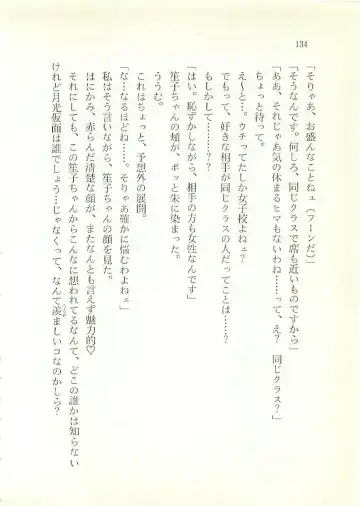 134
「そりゃあ、お盛んなことねェ（フーンだ）」
「そうなんです。何しろ、同じクラスで席も近いものですから」
「ああ、それじゃあ気の休まるヒマもないわね……って、え？　同じクラス？」
ちょっと待って。
え〜と…。ウチってたしか女子校よねェ？
でもって、好きな相手が同じクラスの人だってことは…
もしかして…………？？
「はい。恥ずかしながら、相手の方も女性なんです」
笙子ちゃんの頬が、ポッと朱に染まった。
ううむ。
これはちょっと、予想外の展開。
「な…なるほどね……。そりゃあ確かに悩むわよねェ」
私はそう言いながら、笙子ちゃんの顔を見た。
はにかみ、赤らんだ清楚な顔が、またなんとも言えず魅力的♡
それにしても、この笙子ちゃんからこんなに想われてるなんて、どこの誰かは知らない
けれど月光仮面は誰でしょう…じゃなくって、なんて羨ましいコなのかしら？